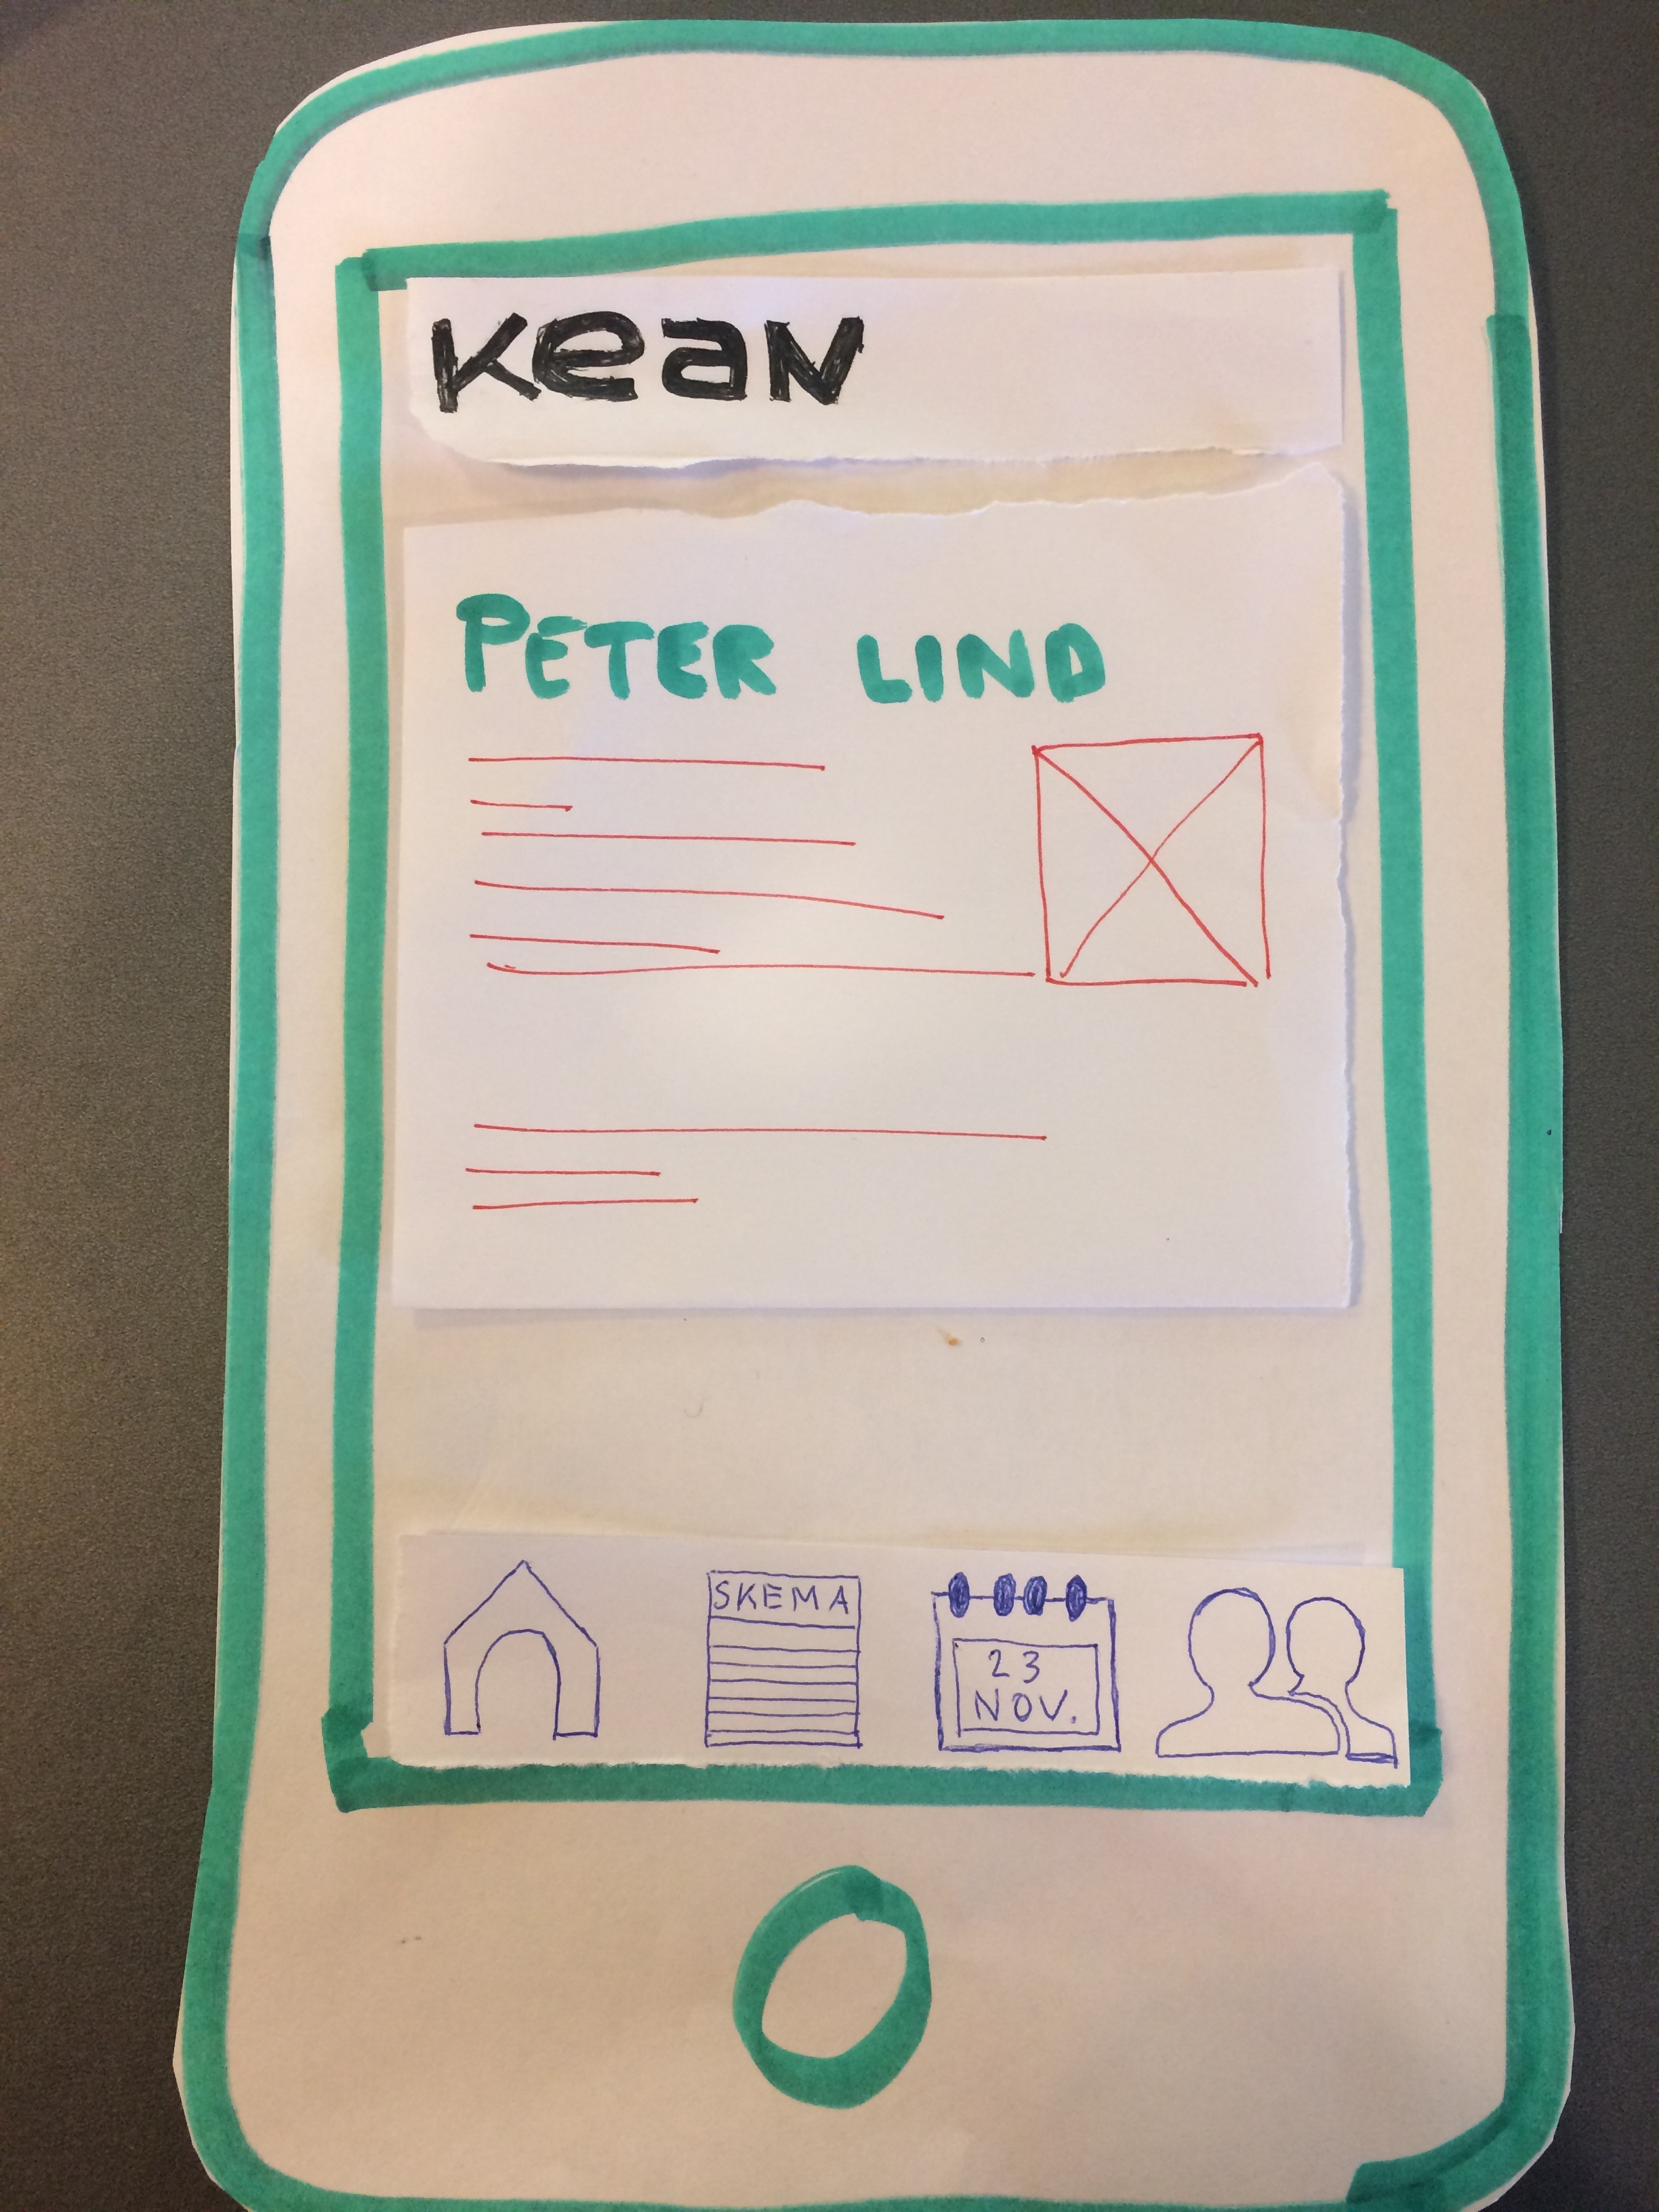 Kean
PETER LIND
SKEMA
23
NOV.